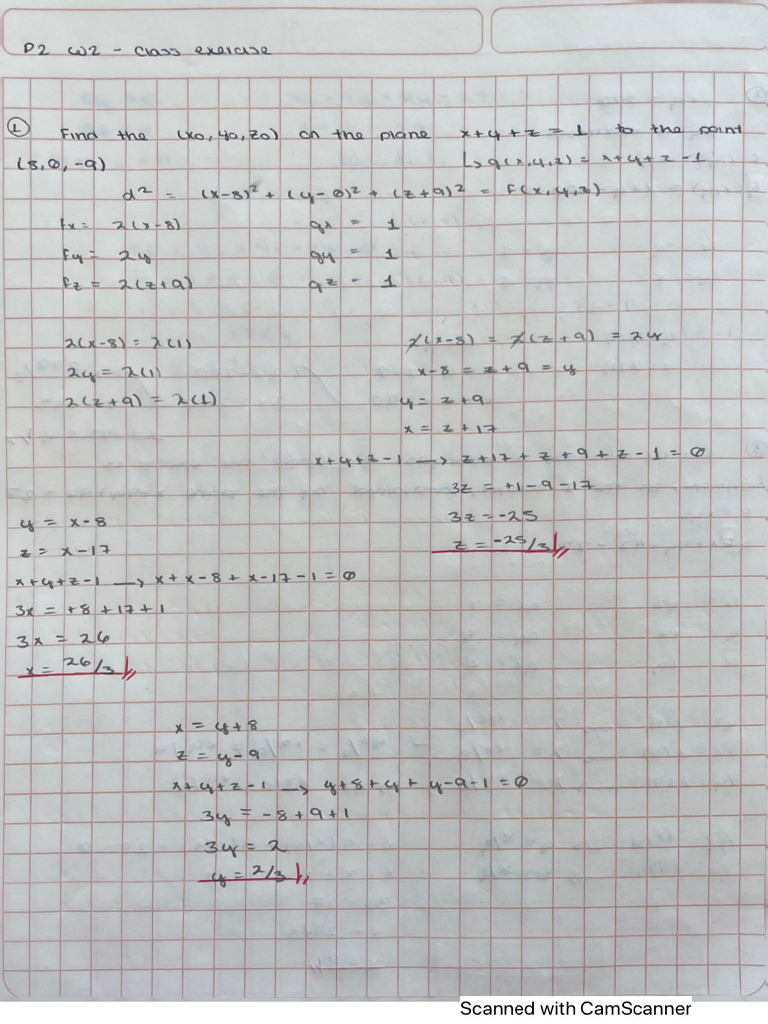 P2 W2 - Class exercise
① Find the (x0, y0, z0) on the plane x+y+z = 1 to the point
(8,0,-9) ↳ g(x,y,z) = x+y+z-1
d² = (x-8)² + (y-0)² + (z+9)² = f(x,y,z)
fx = 2(x-8) gx = 1
fy = 2y gy = 1
fz = 2(z+9) gz = 1
2(x-8) = λ(1) 2(x-8) = 2(z+9) = 2y
2y = λ(1) x-8 = z+9 = y
2(z+9) = λ(1) y = z+9
x = z+17
x+y+z-1 → z+17+z+9+z-1 = 0
3z = +1-9-17
y = x-8 3z = -25
z = x-17 z = -25/3
x+y+z-1 → x+x-8+x-17-1 = 0
3x = +8+17+1
3x = 26
x = 26/3
x = y+8
z = y-9
x+y+z-1 → y+8+y+y-9-1 = 0
3y = -8+9+1
3y = 2
y = 2/3
Scanned with CamScanner